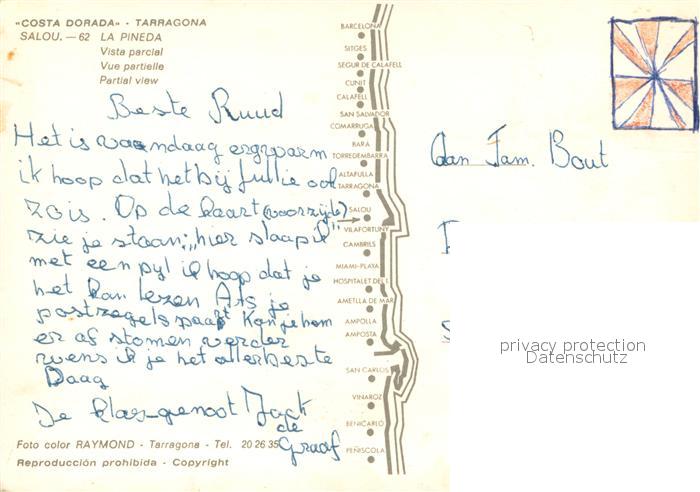 «COSTA DORADA» - TARRAGONA
SALOU. — 62 LA PINEDA
Vista parcial
Vue partielle
Partial view
Beste Ruud
Het is vaandaag ergwarm
ik hoop dat het bij jullie ook
zo is. Op de kaart (voorzijde)
zie je staan: „hier slaap ik"
met een pyl ik hoop dat je
het kan lezen Als je
postzegels spaart Kan je hem
er af stomen verder
wens ik je het allerbeste
Daag
Je klas-genoot Jack
de
Graaf
Foto color RAYMOND - Tarragona - Tel. 20 26 35
Reproducción prohibida - Copyright
BARCELONA
SITGES
SEGUR DE CALAFELL
CUNIT
CALAFELL
SAN SALVADOR
COMARRUGA
BARA
TORREDEMBARRA
ALTAFULLA
TARRAGONA
SALOU
VILAFORTUNY
CAMBRILS
MIAMI-PLAYA
HOSPITALET DEL I.
AMETLLA DE MAR
AMPOLLA
AMPOSTA
SAN CARLOS
VINAROZ
BENICARLO
PEÑISCOLA
Aan Fam. Bout
privacy protection
Datenschutz